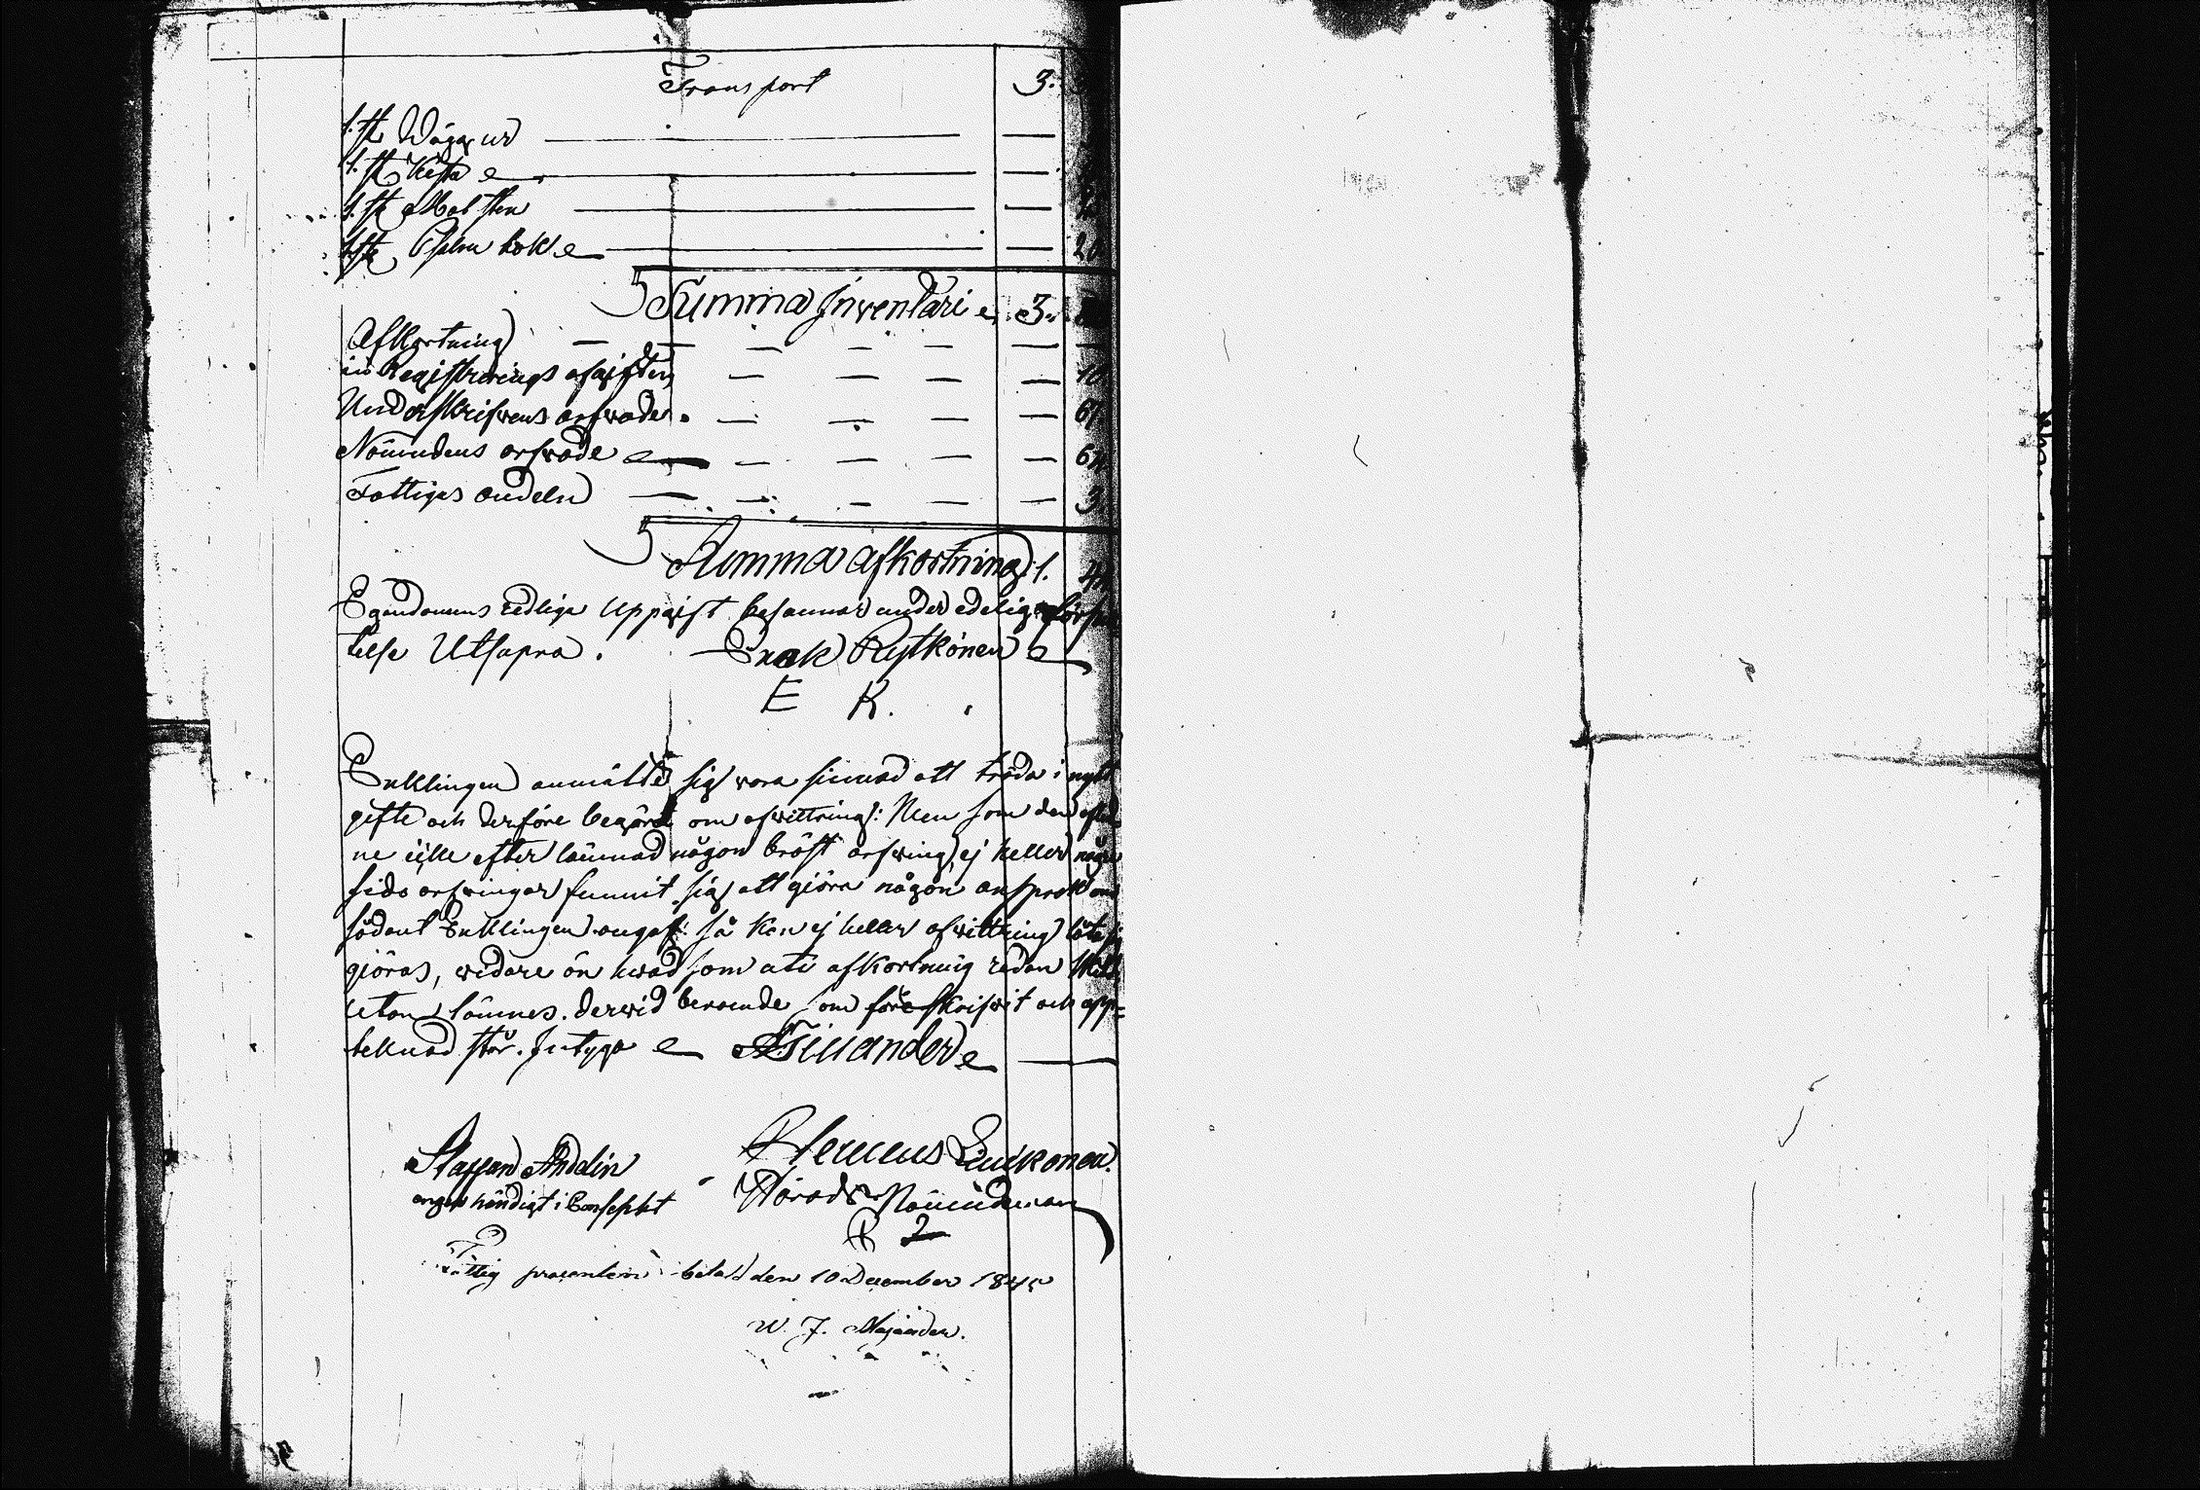 Transport 3.
1. st Wägg ur — —
1. st Kista — —
1. st — —
1 st Psalm bok — — 20
Summa Inventarie 3.
Afkortning — — — — — —
in Registrerings afgiften — — — — 10
Underskrifwens arfwode — — — 67
Nämndens arfwode — — — — 64
Fattiges andeln — — — — — 3
Summa afkortning 1.
Egendomens redliga uppgift besannas under edelig förplik
telse Utsupra. Enok Rytkönen
E R.
Enklingen anmälte sig wara sinnad att träda i nytt
gifte och derföre begärt om afwittring: Men som den aflid
ne icke efter lämnad någon bröst arfwing, ej heller några
sido arfwingar funnit sig att giöra någon anspråk om
sådant Enklingen angaf: så kan ej heller afwittring låta sig
giöras, widare än hwad som uti afkortning redan
utan lämnes. derwid beroende som före skrifwit och opp=
teknad står. Intyga Tillander
Staffan Ahdelin Klemens Leinkonen.
egen händigt i Consephtt Härads Nämndeman
Fattig procenten betald den 10 December 1845
W. F. Majander.